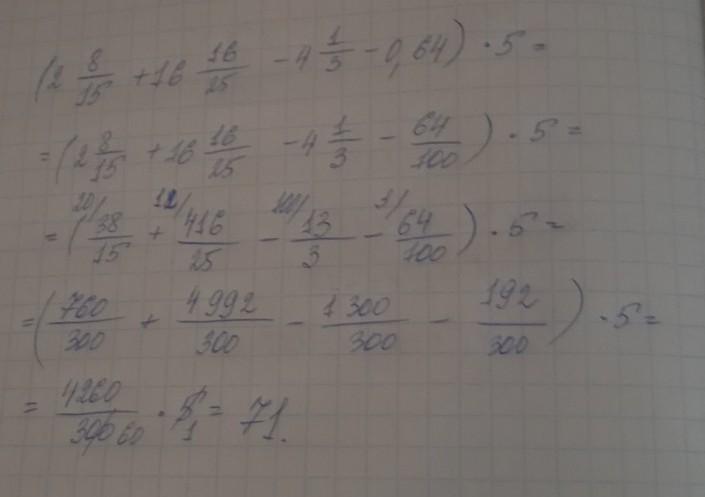 (2 8/15 + 16 16/25 - 4 1/3 - 0,64) · 5 =
= (2 8/15 + 16 16/25 - 4 1/3 - 64/100) · 5 =
20/ 12/ 100/ 3/
= (38/15 + 416/25 - 13/3 - 64/100) · 5 =
= (760/300 + 4992/300 - 1300/300 - 192/300) · 5 =
= 4260/300 60 · 5 1 = 71.